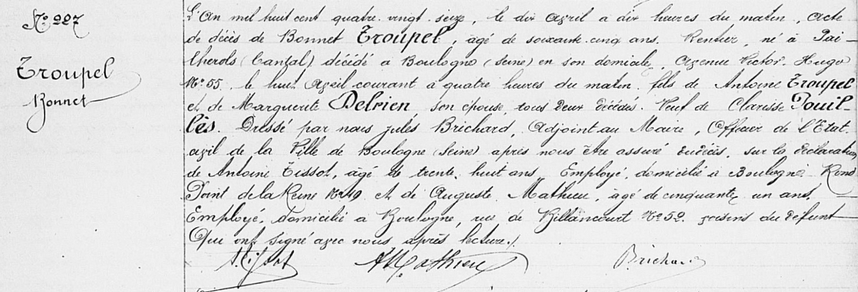 N° 227
Troupel
Bonnet
L'An mil huit cent quatre vingt seize, le dix Avril a dix heures du matin, Acte
de décès de Bonnet Troupel, agé de soixante cinq ans, Rentier, né à Pail-
lherols (Cantal) décédé à Boulogne (Seine) en son domicile, Avenue Victor Hugo
N° 55, le huit Avril courant à quatre heures du matin, fils de Antoine Troupel
et de Marguerite Delrien son épouse, tous deux décédés. Veuf de Clarisse Pouil-
lès. Dressé par nous Jules Brichard, Adjoint au Maire, Officier de l'Etat
civil de la Ville de Boulogne (Seine) après nous être assuré du décès, sur la déclaration
de Antoine Tissot, agé de trente huit ans, Employé, domicilié à Boulogne, Rond
Point de la Reine N° 49 et de Auguste Mathieu, agé de cinquante un ans,
Employé, domicilié à Boulogne, rue de Billancourt N° 50 voisins du défunt
Qui ont signé avec nous, après lecture./.
AMathieu Brichard